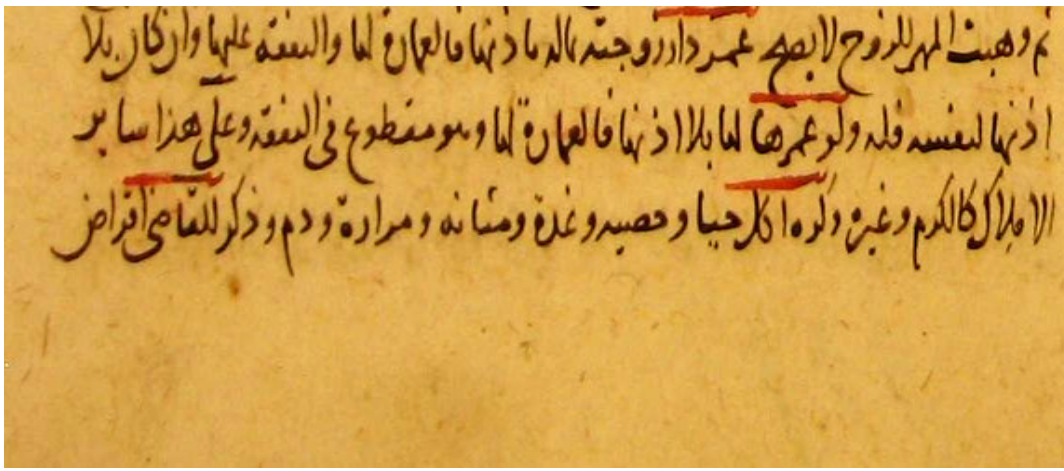 ثم وهبت المهر للزوج لا يصح عمر دار زوجته بماله باذنها فالعمارة لها والنفقة عليها وان كان بلا
اذنها لنفسه فله ولو عمرها لها بلا اذنها فالعمارة لها وهو متطوع في النفقة وعلى هذا ساير
الاملاك كالكرم وغيره ذكره اكل حيا وخصيه وغدة ومثانه ومرارة ودم وذكر للقاضي اقراض